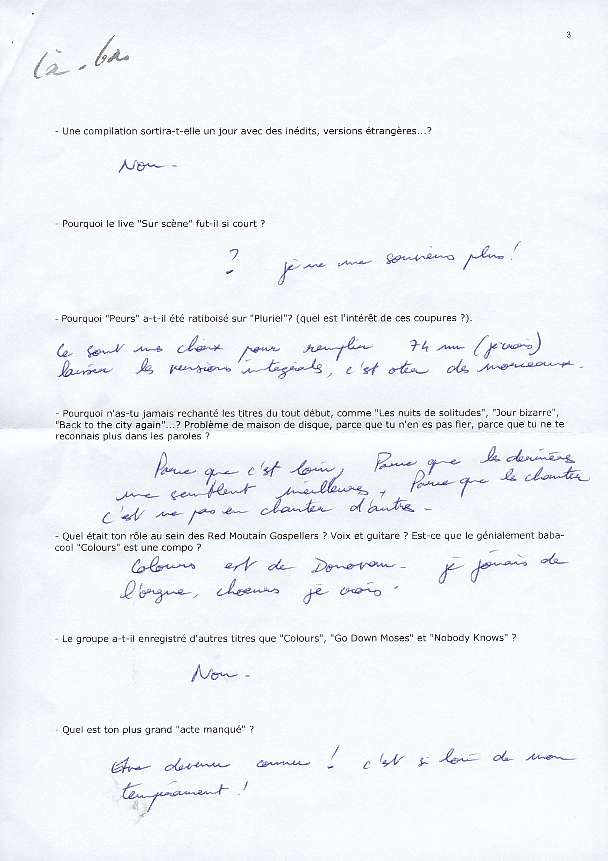 3
là-bas
- Une compilation sortira-t-elle un jour avec des inédits, versions étrangères...?
Non -
- Pourquoi le live "Sur scène" fut-il si court ?
? je ne me souviens plus !
- Pourquoi "Peurs" a-t-il été ratiboisé sur "Pluriel"? (quel est l'intérêt de ces coupures ?).
Ce sont mes choix pour remplir 74 mn (je crois)
laisser les versions intégrales, c'est oter des morceaux.
- Pourquoi n'as-tu jamais rechanté les titres du tout début, comme "Les nuits de solitudes", "Jour bizarre",
"Back to the city again"...? Problème de maison de disque, parce que tu n'en es pas fier, parce que tu ne te
reconnais plus dans les paroles ?
Parce que c'est loin, Parce que les dernières
me semblent meilleures, Parce que les chanter
c'est ne pas en chanter d'autres -
- Quel était ton rôle au sein des Red Moutain Gospellers ? Voix et guitare ? Est-ce que le génialement baba-
cool "Colours" est une compo ?
Colours est de Donovan - je jouais de
l'orgue, choeurs je crois.
- Le groupe a-t-il enregistré d'autres titres que "Colours", "Go Down Moses" et "Nobody Knows" ?
Non -
- Quel est ton plus grand "acte manqué" ?
Etre devenu connu ! c'est si loin de mon
tempérament !